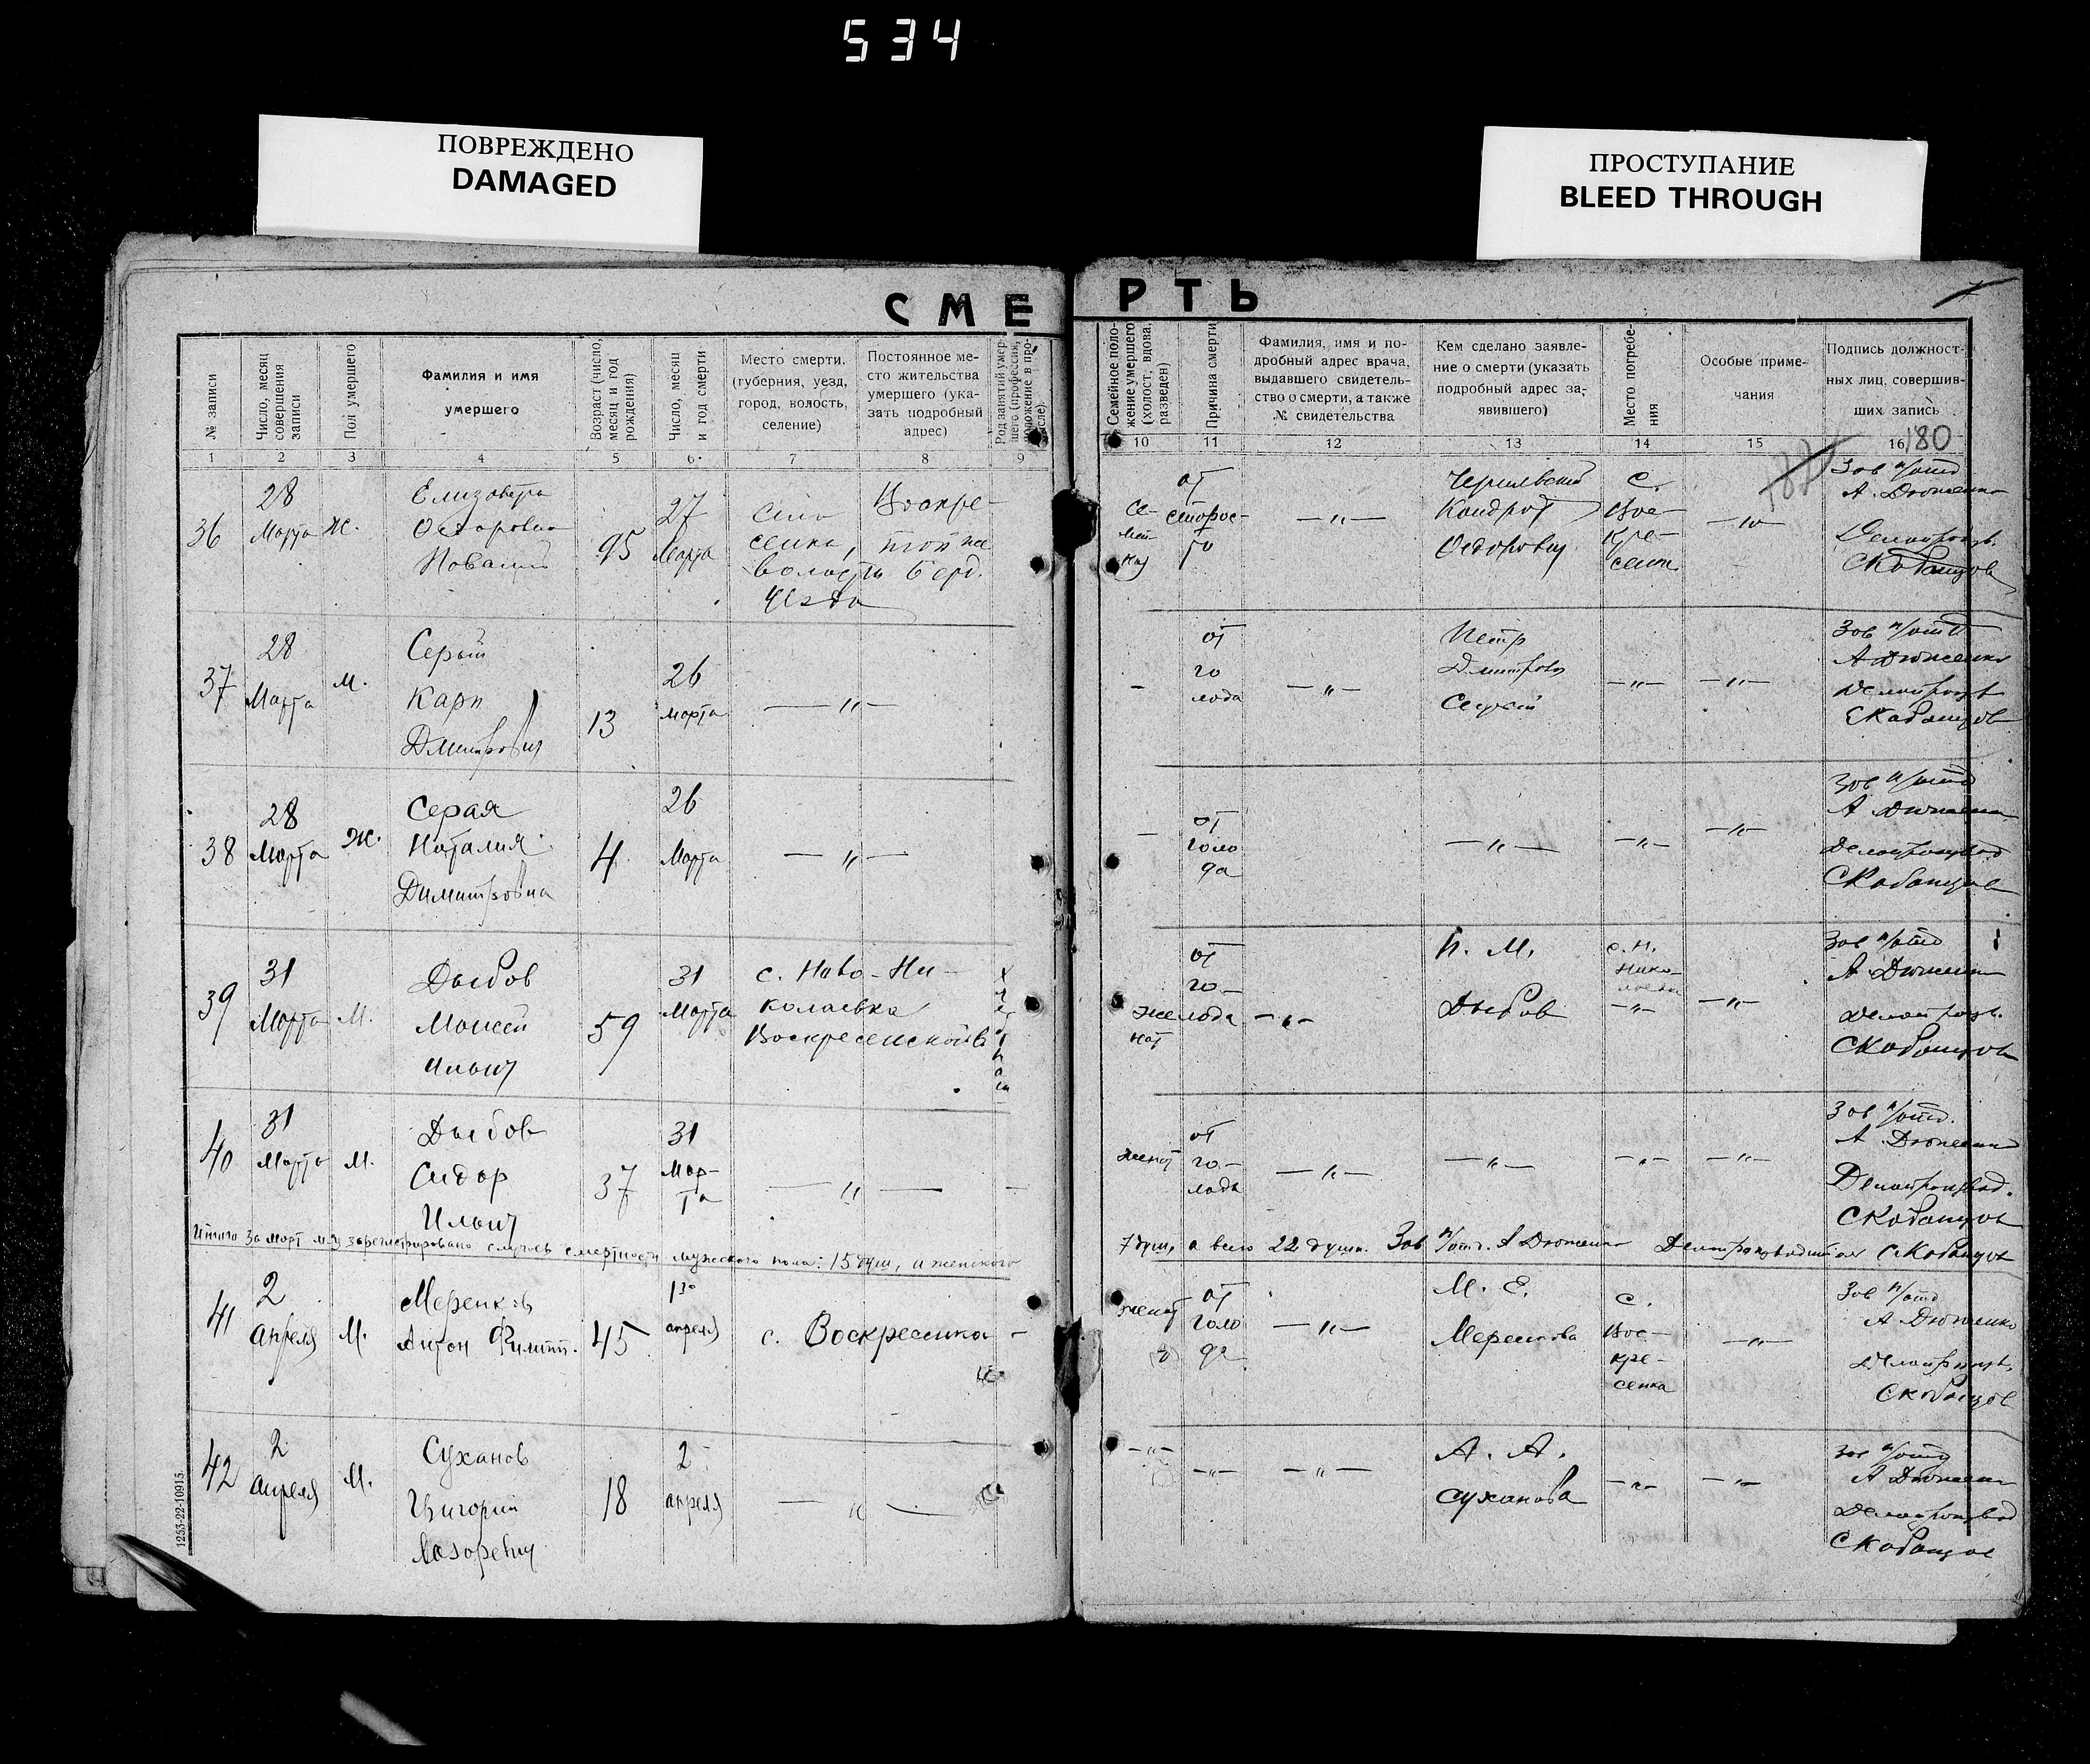 534
ПОВРЕЖДЕНО
DAMAGED
ПРОСТУПАНИЕ
BLEED THROUGH
СМЕРТЬ
№ записи
Число, месяц совершения записи
Пол умершего
Фамилия и имя
умершего
Возраст (число, месяц и год рождения)
Число, месяц и год смерти
Место смерти.
(губерния, уезд,
город, волость,
селение)
Постоянное ме-
сто жительства
умершего (ука-
зать подробный
адрес)
Род занятий умер-
шего (профессия,
положение в про-
мысле).
Семейное поло-
жение умершего
(холост, вдова,
разведен)
Причина смерти
Фамилия, имя и по-
дробный адрес врача,
выдавшего свидетель-
ство о смерти, а также
№ свидетельства
Кем сделано заявле-
ние о смерти (указать
подробный адрес за-
явившего)
Место погребе-
ния
Особые приме-
чания
Подпись должност-
ных лиц, совершив-
ших запись
1 2 3 4 5 6 7 8 9 10 11 12 13 14 15 16
180
36
28
Марта
Ж.
Елизавета
95
27
Марта
Село Воскре-
сенка, той же
волости Берд.
уезда
от
старос-
ти
—"—
Кондрат
Федорович
с.
Вос-
кре-
сенка
—"—
Зав п/отд
А. Дюженко
Делопроизв.
СКабанцов
37
28
Марта
М.
Серый
Карп
Дмитрович
13
26
марта
—"—
-
от
го
лода
—"—
Петр
Дмитрович
Серый
—"—
—"—
Зав п/отд
А Дюженко
Делопроизв
СКабанцов
38
28
Марта
Ж.
Серая
Наталия
Димитровна
4
26
Марта
—"—
—
от
голо
да
—"—
—"—
—"—
Зав п/отд
А Дюженко
Делопроизвод
СКабанцов
39
31
Марта
М.
Дыбов
Моисей
Ильич
59
31
Марта
с. Ново-Ни-
колаевка
Воскресенской в
хлебопаш
женат
от
го-
лода
—"—
И. М.
Дыбов
с. Н.
Нико-
лаевка
—"—
—"—
Зав п/отд
А Дюженко
Делопроизв.
СКабанцов
40
31
Марта
М.
Дыбов
Сидор
Ильич
37
31
Мар-
та
—"—
-
женат
от
го-
лода
—"—
—"—
—"—
—"—
Зав п/отд.
А Дюженко
Делопроизвод.
СКабанцов
Итого за март м-ц зарегистрировано случаев смертности мужского пола: 15 душ, и женского
7 душ, а всего 22 души. Зав п/отд. А Дюженко Делопроизводитель СКабанцов
41
2
Апреля
М.
Меренков
Антон Филипп.
45
1го
апреля
с. Воскресенка -
женат
от
голо
да
—"—
М. Е.
Меренкова
с.
Вос-
кре-
сенка
—"—
Зав п/отд
А Дюженко
Делопроизв.
СКабанцов
42
2
Апреля
М.
Суханов
Григорий
Лазоревич
18
2
апреля
—"—
—"—
—"—
—"—
А. А.
Суханова
—"—
—"—
Зав п/отд
А Дюженко
Делопроизвод
СКабанцов
1253-22-10915